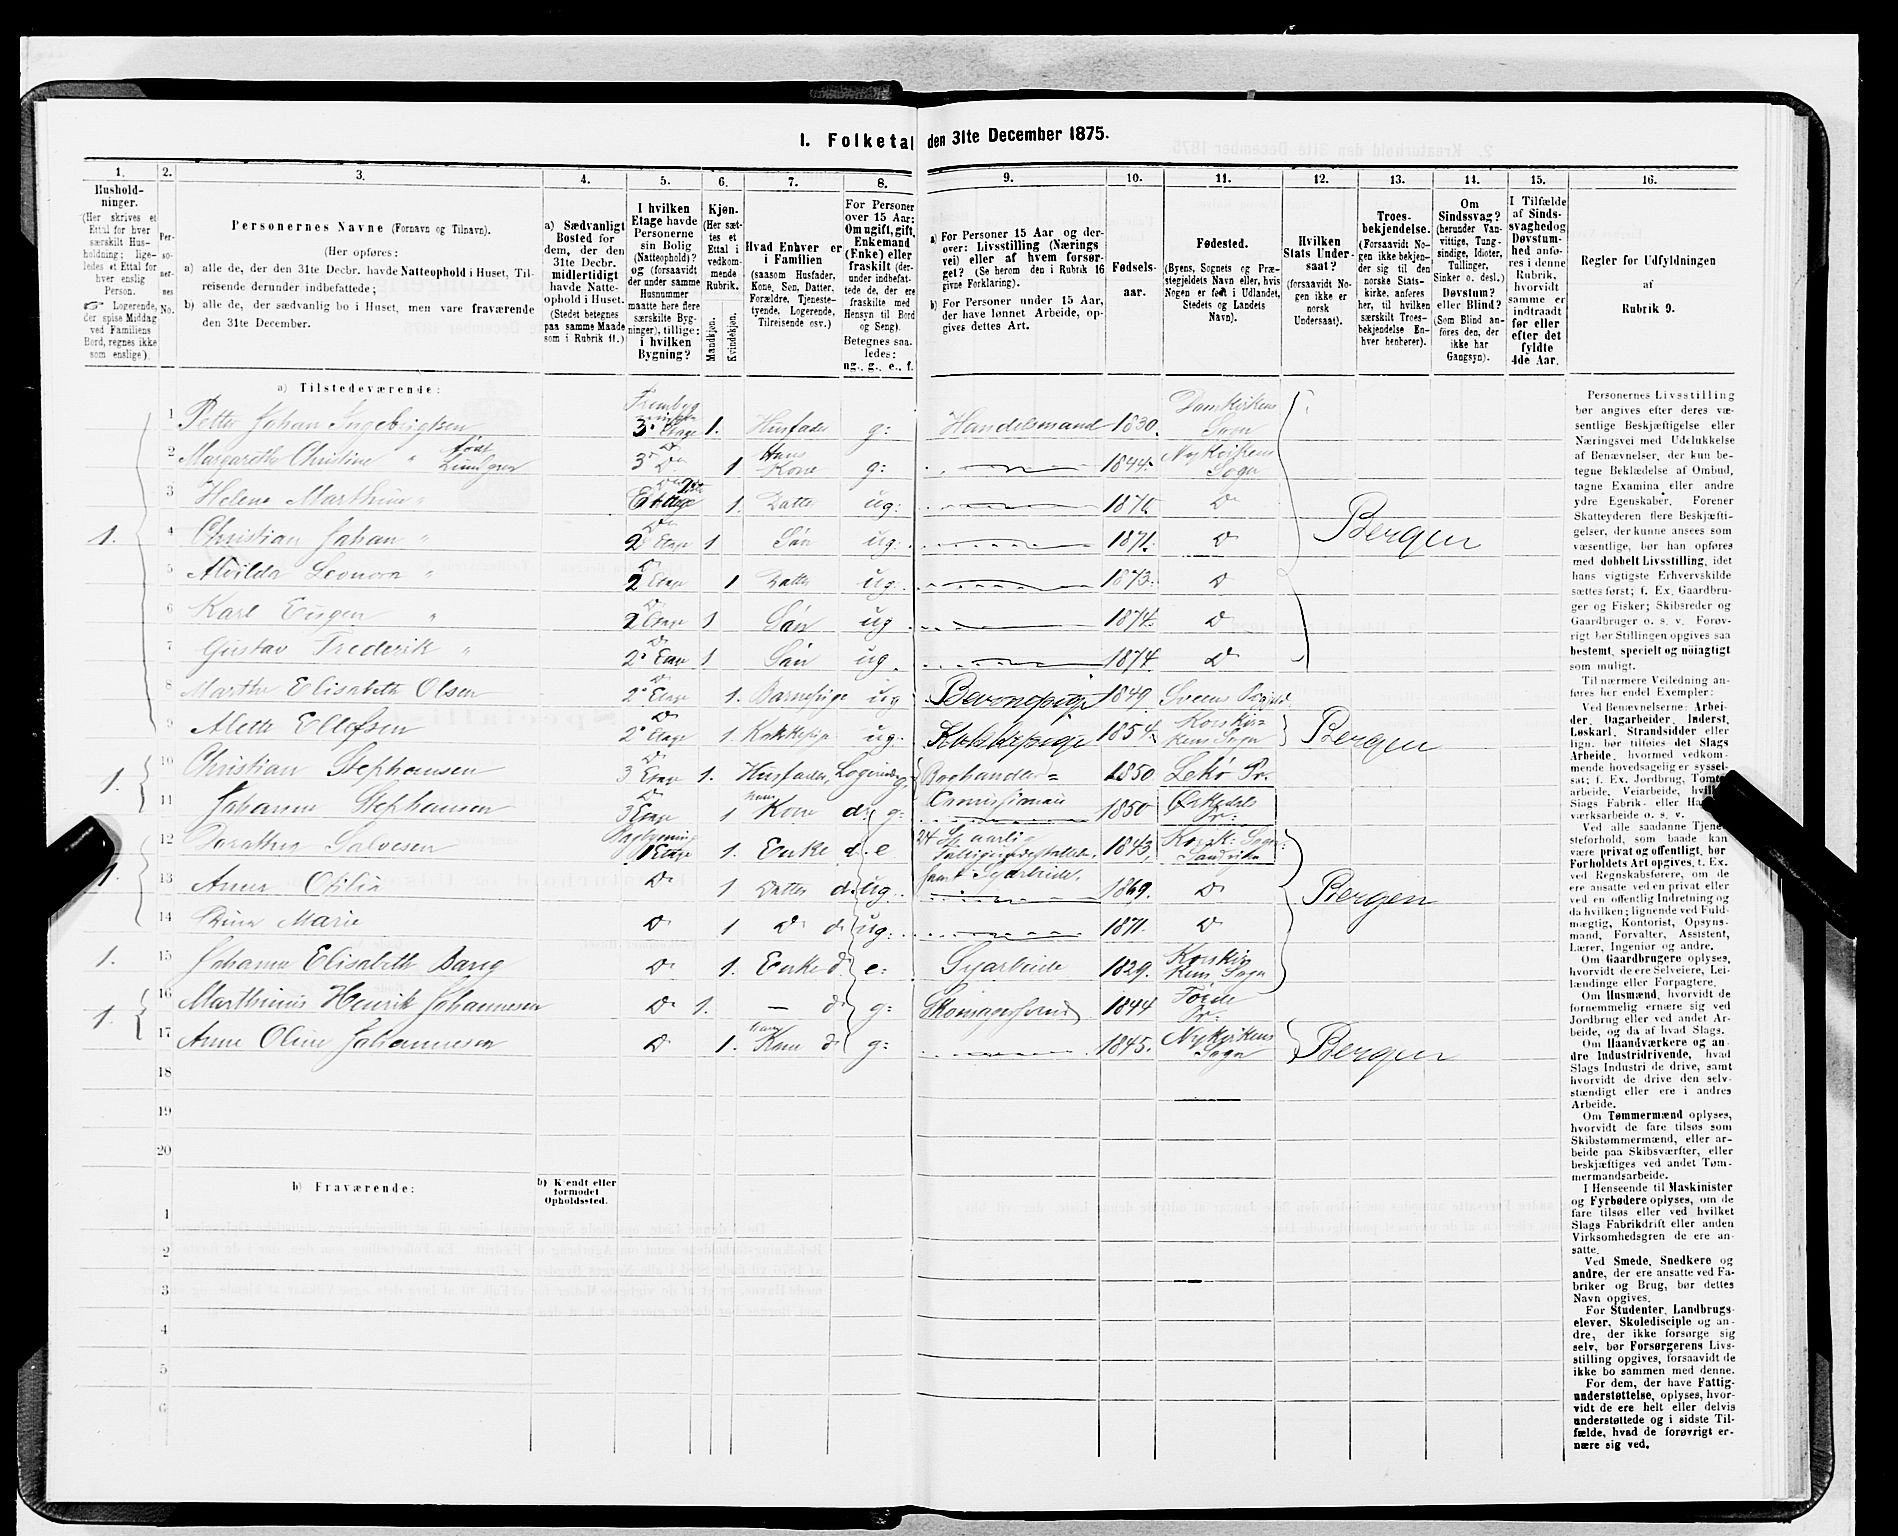 I. Folketal den 31te December 1875.
1. 2. 3. 4. 5. 6. 7. 8. 9. 10. 11. 12. 13. 14. 15. 16.
Hushold-
ninger.
(Her skrives et
Ettal for hver
særskilt Hus-
holdning; lige-
ledes et Ettal for
hver enslig
Person.
☞ Logerende,
der spise Middag
ved Familiens
Bord, regnes ikke
som enslige).
Per-
so-
ner-
nes
No.
Personernes Navne (Fornavn og Tilnavn).
(Her opføres:
a) alle de, der den 31te Decbr. havde Natteophold i Huset, Til-
reisende derunder indbefattede;
b) alle de, der sædvanlig bo i Huset, men vare fraværende
den 31te December.
a) Sædvanligt
Bosted for
dem, der den
31te Decbr.
midlertidigt
havde Natte-
ophold i Huset.
(Stedet betegnes
paa samme Maade
som i Rubrik 11.)
I hvilken
Etage havde
Personerne
sin Bolig
(Natteophold)?
og (forsaavidt
der under samme
Husnummer
maatte høre flere
særskilte Byg-
ninger), tillige:
i hvilken
Bygning?
Kjøn.
(Her sæt-
tes et
Ettal i
vedkom-
mende
Rubrik.
Mandkjøn.
Kvindekjøn.
Hvad Enhver er
i Familien
(saasom Husfader,
Kone, Søn, Datter,
Forældre, Tjeneste-
tyende, Logerende,
Tilreisende osv.)
For Personer
over 15 Aar:
Om ugift, gift,
Enkemand
(Enke) eller
fraskilt (der-
under indbefat-
tede de, der ere
fraskilte med
Hensyn til Bord
og Seng).
Betegnes saa-
ledes:
ug., g., e., f.
a) For Personer 15 Aar og der-
over: Livsstilling (Nærings
vei) eller af hvem forsør-
get? (Se herom den i Rubrik 16
givne Forklaring).
b) For Personer under 15 Aar,
der have lønnet Arbeide, op-
gives dettes Art.
Fødsels-
aar.
Fødested.
(Byens, Sognets og Præ-
stegjeldets Navn eller, hvis
Nogen er født i Udlandet,
Stedets og Landets
Navn).
Hvilken
Stats Under-
saat?
(forsaavidt No-
gen ikke er
norsk
Undersaat).
Troes-
bekjendelse.
(Forsaavidt No-
gen ikke bekjen-
der sig til den
norske Stats-
kirke, anføres
her, til hvilken
særskilt Troes-
bekjendelse En-
hver henhører).
Om
Sindssvag?
(herunder Van-
vittige, Tung-
sindige, Idioter,
Tullinger,
Sinker o. desl.)
Døvstum?
eller Blind?
(Som Blind an-
føres den, der
ikke har
Gangsyn).
I Tilfælde
af Sinds-
svaghed og
Døvstum-
hed anfø-
res i denne
Rubrik,
hvorvidt
samme er
indtraadt
før eller
efter det
fyldte
4de Aar.
Regler for Udfyldningen
af
Rubrik 9.
a) Tilstedeværende:
1 Petter Johan Ingebrigtsen 3. Etage 1. Husfader g: Handelsmand 1830. Domkirkens Sogn
2 Margarethe Christine " født Lundgren 3 Do 1 Hans Kone g: 1844. Nykirkens Sogn
3 Helene Marthine " Etage 1. Datter ug: 1870 Do
1. 4 Christian Johan " 2 Etage 1 Søn ug. 1871. Do Bergen
5 Alvilda Leonora " 2 Etage 1 Datter ug 1873. Do
6 Karl Eugen " 2 Etage 1 Søn ug 1874. Do
7 Gustav Frederik " 2. Etage 1 Søn ug. 1874. Do
8 Marthe Elisabeth Olsen 2. Etage 1. Barnepige ug Barnepige 1849. Sveens
9 Aletta Ellefsen 2. Etage 1. Kokkepige ug. Kokkepige 1854. Korskirkens Sogn Bergen
1. 10 Christian Stephansen 3 Etage 1. Husfader, Logerende g: Boghandler= 1850 Lekø Pr.
11 Johanne Stephansen 3 Etage 1 hans Kone do g: 1850 Ørkedals Pr:
12 Dorothea Salvesen Bagbygning 1 Etage 1. Enke do e 1843, Korsk: Sogn Sandviken
1. 13 Anna Otilia Do 1 Datter do ug. samt Syarbeide. 1869. Do Bergen
14 Marie Do 1 Do do ug: 1871. Do
1. 15 Johanna Elisabeth Do 1. Enke do e: Syarbeide 1829. Korskirkens Sogn
1. 16 Marthinus Henrik Johannesen Do 1. — do g: Skomagersvend 1844 Førde Pr:
17 Anne Oline Johannesen Do 1. hans Kone do g: 1845. Nykirkens Sogn Bergen
18
19
20
b) Fraværende:
b) Kjendt eller
formodet
Opholdssted.
1
2
3
4
5
6
Personernes Livsstilling
bør angives efter deres væ-
sentlige Beskjæftigelse eller
Næringsvei med Udelukkelse
af Benævnelser, der kun be-
tegne Beklædelse af Ombud,
tagne Examina eller andre
ydre Egenskaber. Forener
Skatteyderen flere Beskjæfti-
gelser, der kunne ansees som
væsentlige, bør han opføres
med dobbelt Livsstilling, idet
hans vigtigste Erhvervskilde
sættes først; f. Ex. Gaardbru-
ger og Fisker; Skibsreder og
Gaardbruger o. s. v. Forøv-
rigt bør Stillingen opgives saa
bestemt, specielt og nøiagtigt
som muligt.
Til nærmere Veiledning an-
føres her endel Exempler:
Ved Benævnelserne: Arbei-
der, Dagarbeider, Inderst,
Løskarl, Strandsidder eller
lign. bør tilføies det Slags
Arbeide, hvormed vedkom-
mende hovedsagelig er syssel-
sat; f. Ex. Jordbrug, Tomte-
arbeide, Veiarbeide, hvilket
Slags Fabrik- eller
værksarbeide o. s. v.
Ved alle saadanne Tjene-
steforhold, som baade kan
være privat og offentligt, bør
Forholdets Art opgives, t. Ex.
ved Regnskabsførere, om de
ere ansatte ved en privat eller
ved en offentlig Indretning og
da hvilken; lignende ved Fuld-
mægtig, Kontorist, Opsyns-
mand, Forvalter, Assistent,
Lærer, Ingeniør og andre.
Om Gaardbrugere oplyses,
hvorvidt de ere Selveiere, Lei-
lændinge eller Forpagtere.
Om Husmænd, hvorvidt de
fornemmelig ernære sig ved
Jordbrug eller ved andet Ar-
beide, og da af hvad Slags.
Om Haandværkere og an-
dre Industridrivende, hvad
Slags Industri de drive, samt
hvorvidt de drive den selv-
stændigt eller ere i andres
Arbeide.
Om Tømmermænd oplyses,
hvorvidt de fare tilsøs som
Skibstømmermænd, eller ar-
beide paa Skibsværfter, eller
beskjæftiges ved andet Tøm-
mermandsarbeide.
I Henseende til Maskinister
og Fyrbødere oplyses, om de
fare tilsøs eller ved hvilket
Slags Fabrikdrift eller anden
Virksomhedsgren de ere an-
satte.
Ved Smede, Snedkere og
andre, der ere ansatte ved Fa-
briker og Brug, bør dettes
Navn opgives.
For Studenter, Landbrugs-
elever, Skoledisciple og an-
dre, der ikke forsørge sig
selv, bør Forsørgerens Livs-
stilling opgives, forsaavidt de
ikke bo sammen med denne.
For dem, der have Fattig-
understøttelse, oplyses, hvor-
vidt de ere helt eller delvis
understøttede og i sidste Til-
fælde, hvad de forøvrigt er-
nære sig ved.